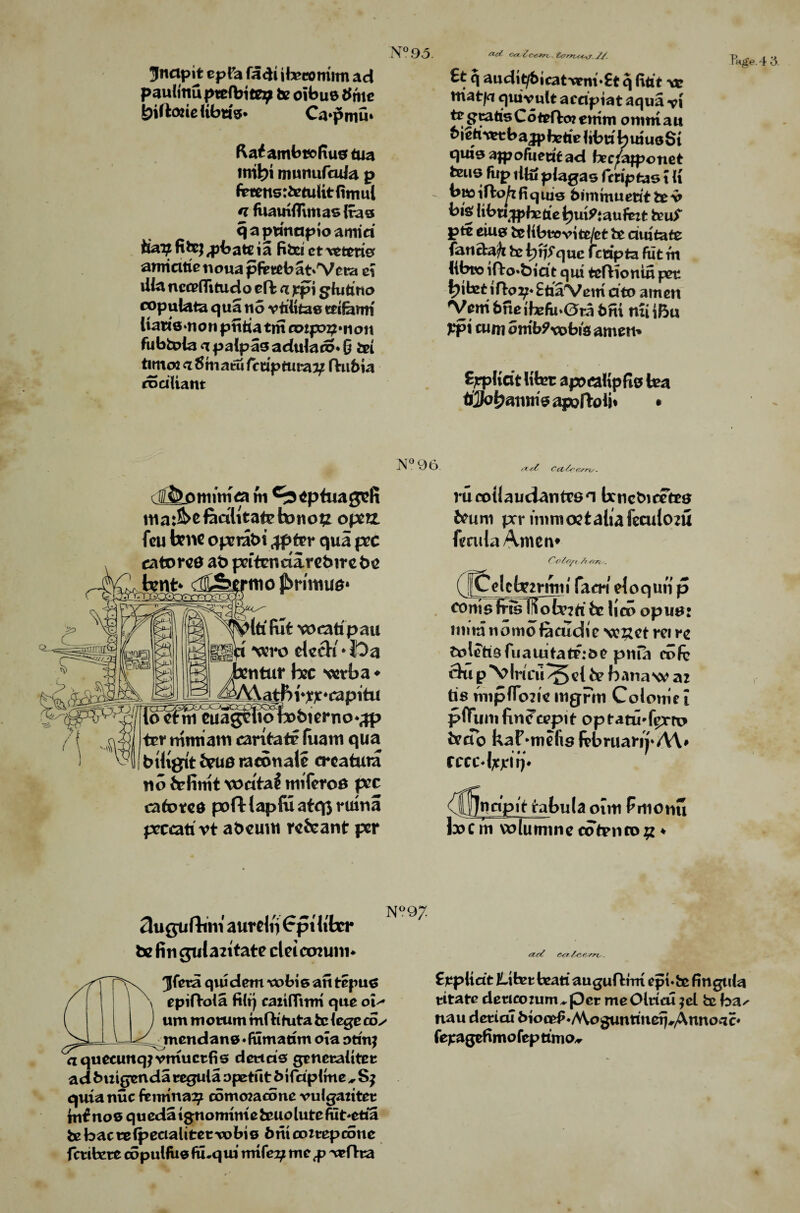 N.º 95.
Page. 43
Jncipit epl'a sācti iheronimi ad
paulinū presbiterꝝ de oībus diuine
historie libris. Ca·pmū·
Frater ambrosius tua
mihi munuscula p
ferens: detulit simul
et suauissimas lr̄as
q a principio amici
ciaꝝ fideꝫ ꝓbate iā fidei et veteris
amicitie noua pferebāt. Vera eī
illa necessitudo est et xp̄i glutino
copulata quā nō vtilitas rei fami
liaris·non pn̄tia tm̄ corpoꝝ·non
subdola et palpās adulacō. ß dei
timor et diuinarū scripturaꝝ studia
cōciliant
Et q audit/dicat veni. Et q sitit ve
niat et qui vult accipiat aquā vi
te gratis Cōtestor enim omni au
dienti verba ꝓphetie libri huius Si
quis apposuerit ad hec/apponet
deus sup illū plagas scriptas ī li
bro isto
fanctā et de hijs que scripta sūt in
libro isto. dicit qui testioniū per
hibet istoꝝ. Etiā Veni cito amen
Veni dn̄e ihesu. Grā dn̄i nr̄i iħu
xp̄i cum om̄ibꝰ vobis amen.
Explicit liber apocalipsis bea
ti Johannis apostoli.
N.º 96.
Dominica in Septuagesi
ma: De facilitate bonoꝝ opeꝝ
seu bene operādi ꝓpter quā pec
catores ab peitencia
Sermo Primus.
Vlti sūt vocati pau
ci vero electi. Pa
bentur hec verba
Math·xx·capitu
ter nimiam caritatē suam qua
dilixit deus racōnalē creaturā
nō definit vocitaē miseros pec
catores post lapsū atqꝫ ruinā
peccati vt ab eum redeant per
rū collaudantes et benedicētes
deum per immortalia seculorū
secula Amen.
Celeberrimi sacri eloquij p
conis fr̄is Roberti de licō opus:
mirā nōmō facūdie veꝝ et rei re
suauitatē: de pn̄ia cōfc
p Vlricū Zel de hanaw ar
tis impssorie mgr̄m Colonie ī
pssum
kal. mēsis februarij. M.
cccc.lxxiij.
Jncipit tabula oīm
hoc in volumine cōtentoꝝ.
N.º 97.
Augustini aurelij Epi liber
de singularitate clericorum.
Jsera quidem vobis an̄ tēpus
epistolā filij carissimi que oī
um morum instituta de lege cō
mendans. sūmatim oīa
quecunqꝫ vniuersis clericis generaliter
ad dirigendā regulā opetūt discipline. Sꝫ
quia nūc feminaꝝ cōmoracōne vulgariter
inter nos quedā ignominie deuolute sūt. etiā
de hac re specialiter vobis
scribere cōpulsus sū. qui miseꝝ me p vestra
Explicit Liber beati augustini epi. de singula
ritate clericorum. Per me Olricū zel de ha
nau clericū diocesꝰ. Moguntineñ. Anno
sexagesimoseptimo.